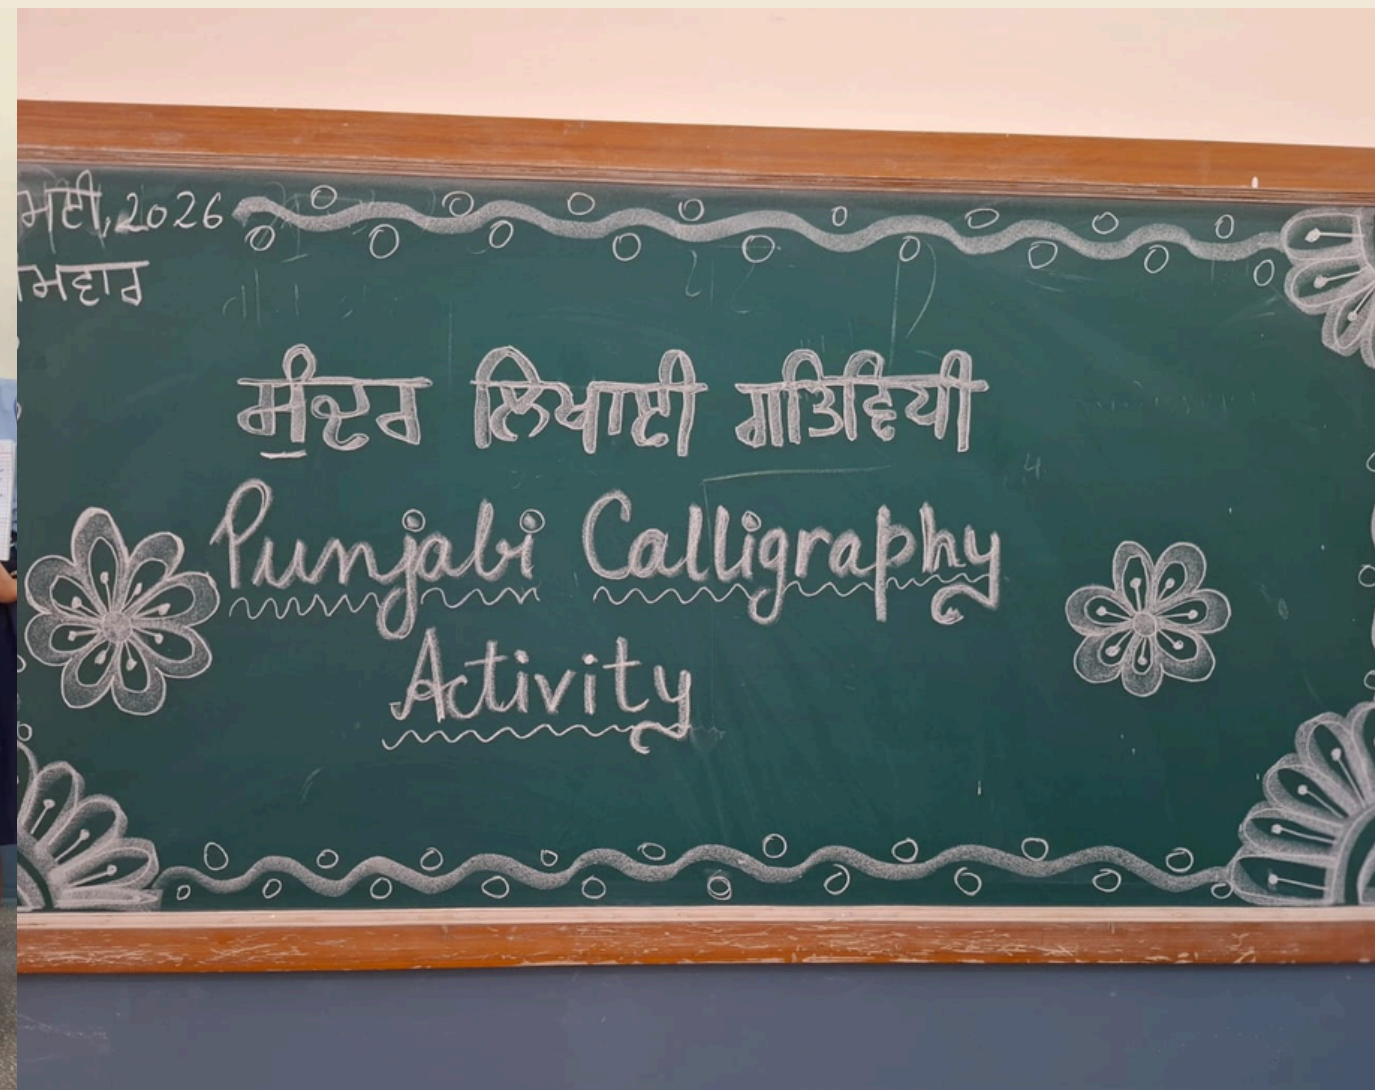 ਮਈ, 2026
ਸੁੰਦਰ ਲਿਖਾਈ ਗਤਿਵਿਧੀ
Punjabi Calligraphy
Activity